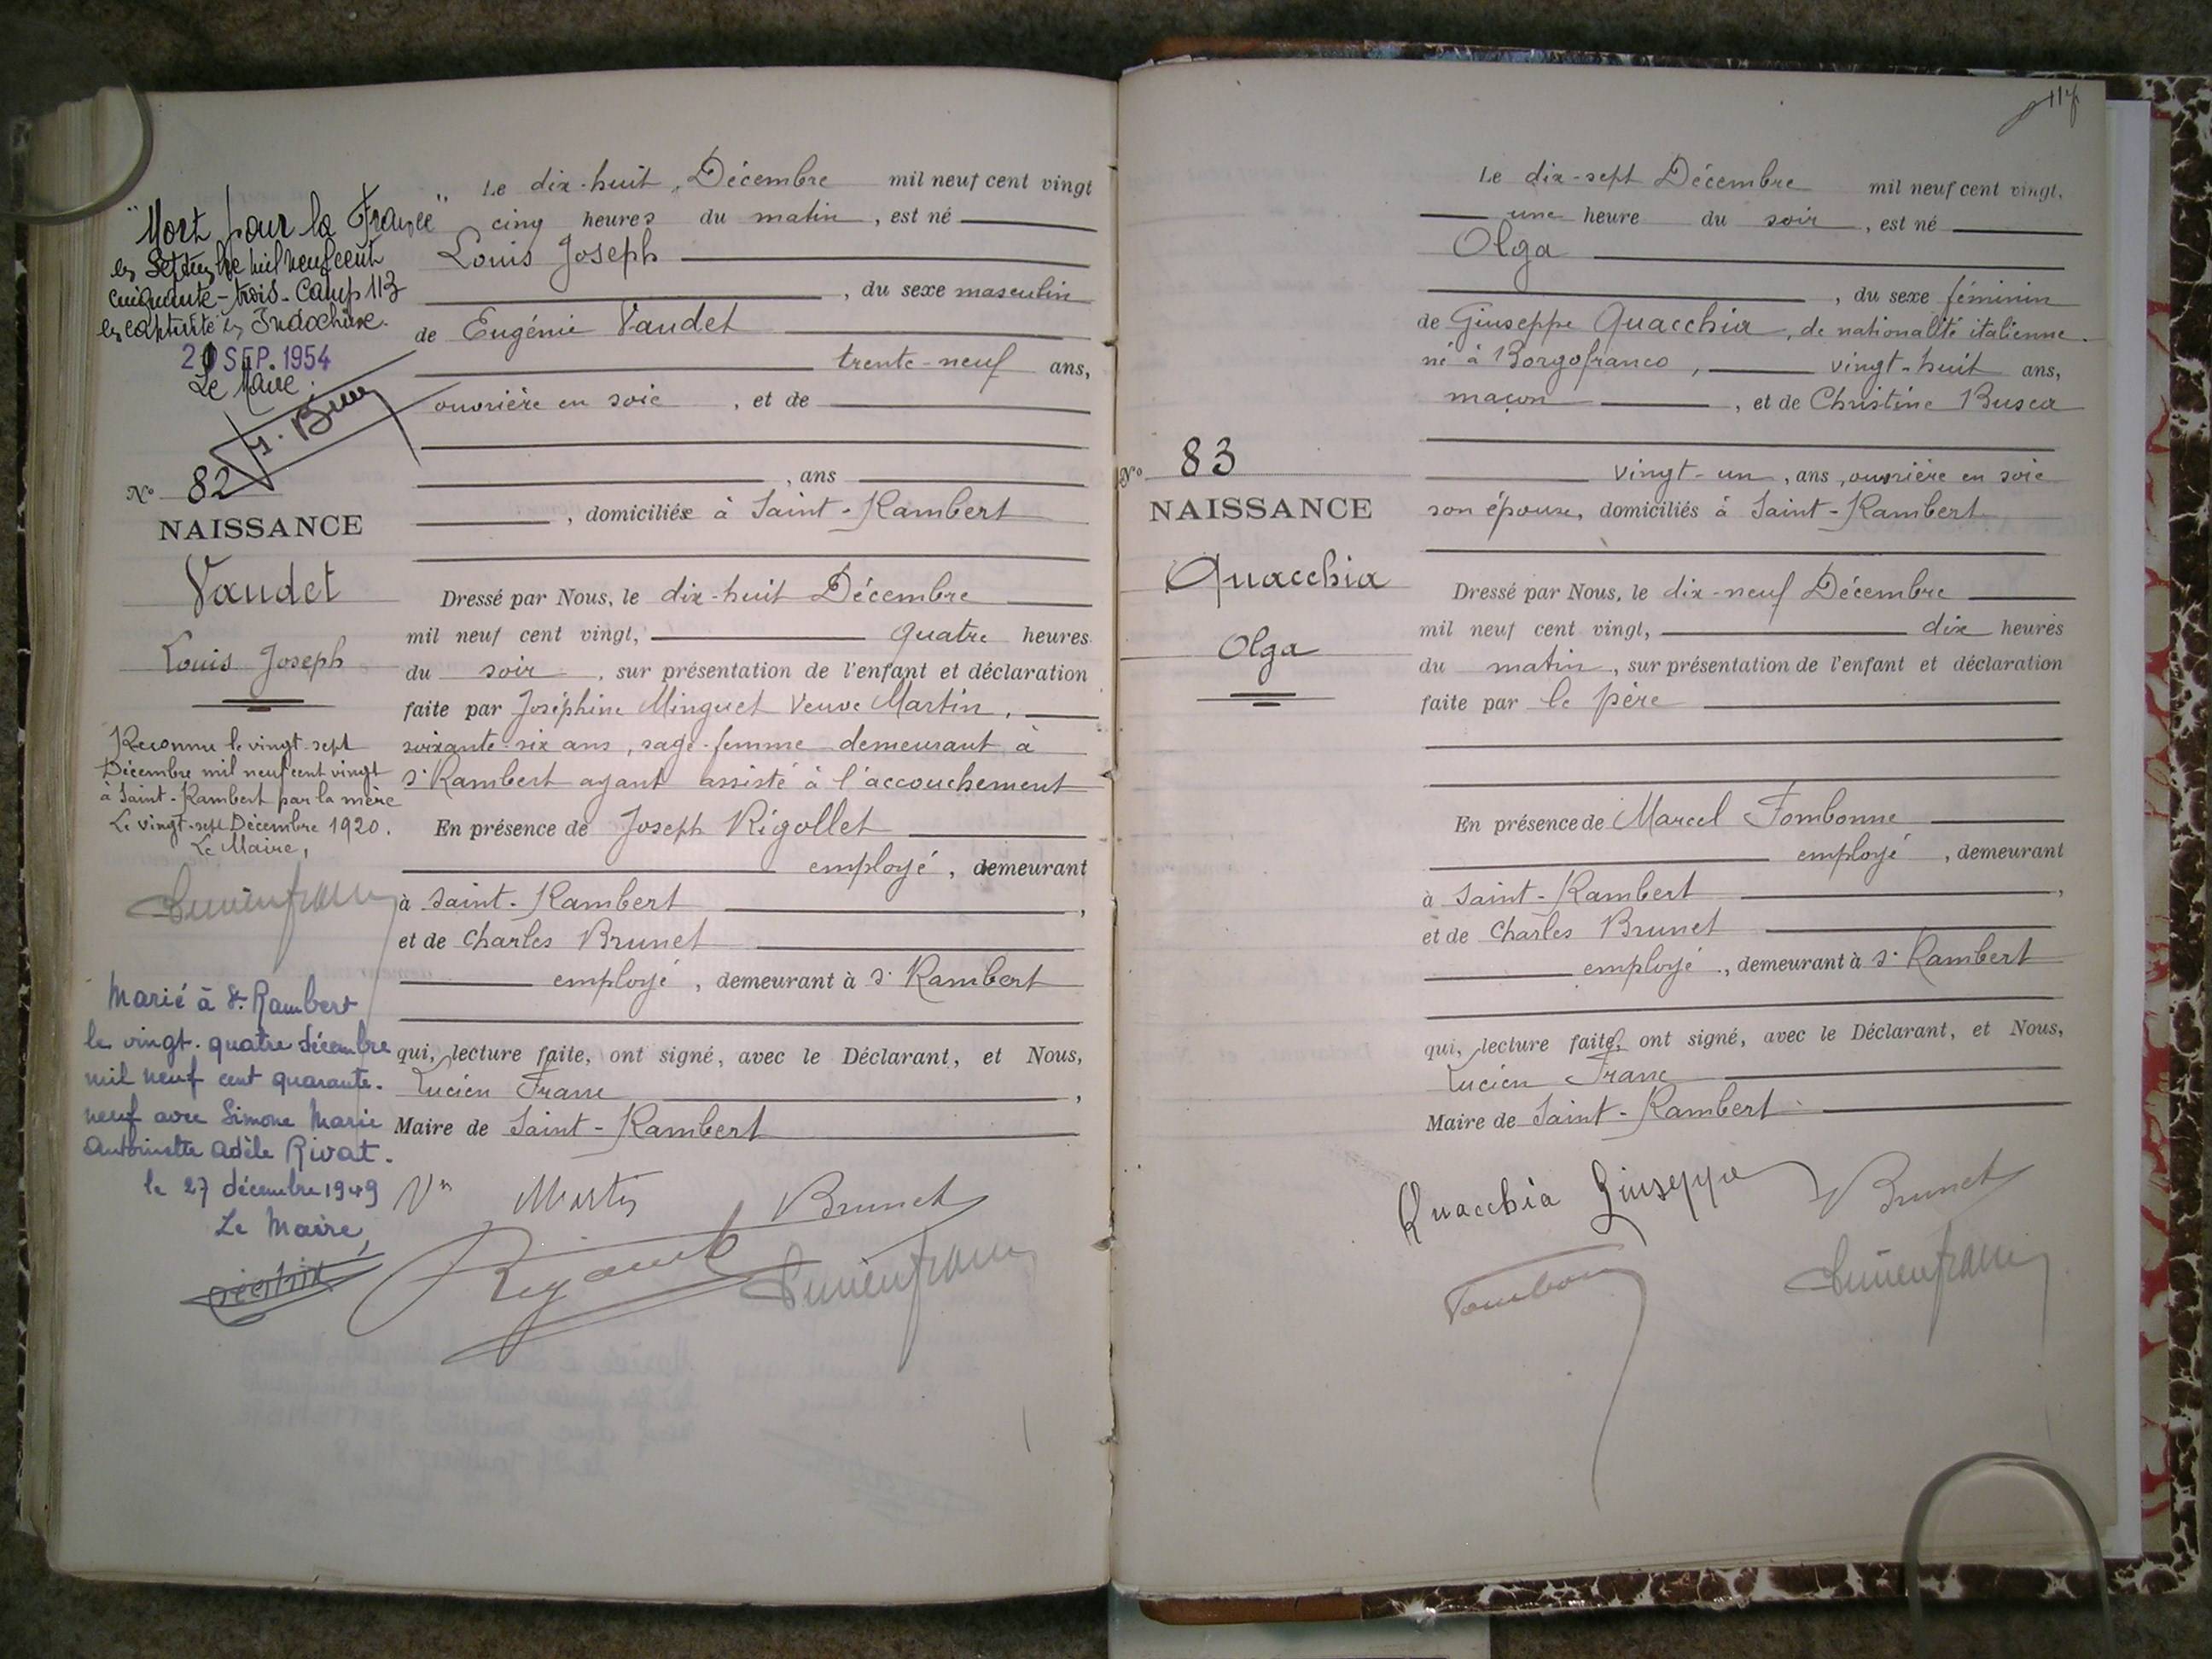 "Mort pour la France"
en Septembre mil neuf cent
cinquante-trois. Camp 113
en captivité en Indochine.
2 SEP. 1954
Le Maire.
N° 82
NAISSANCE
Vaudet
Louis Joseph
Reconnu le vingt-sept
Décembre mil neuf cent vingt
à Saint-Rambert par la mère
Le vingt-sept Décembre 1920.
Le Maire,
Lucien Franc
Marié à St. Rambert
le vingt-quatre décembre
mil neuf cent quarante-
neuf avec Simone Marie
Antoinette Adèle Rivat.
le 27 décembre 1949
Le Maire,
Le dix-huit Décembre mil neuf cent vingt
cinq heures du matin, est né
Louis Joseph
, du sexe masculin
de Eugénie Vaudet
trente-neuf ans,
ouvrière en soie, et de
, ans
, domiciliée à Saint-Rambert
Dressé par Nous, le dix-huit Décembre
mil neuf cent vingt, quatre heures
du soir, sur présentation de l'enfant et déclaration
faite par Joséphine Minguet Veuve Martin,
soixante-six ans, sage-femme demeurant à
St Rambert ayant assisté à l'accouchement
En présence de Joseph Rigollet
employé, demeurant
à Saint-Rambert,
et de Charles Brunet
employé, demeurant à St Rambert
qui, lecture faite, ont signé, avec le Déclarant, et Nous,
Lucien Franc,
Maire de Saint-Rambert
Vve Martin Brunet
Lucien Franc
117
N° 83
NAISSANCE
Quacchia
Olga
Le dix-sept Décembre mil neuf cent vingt,
une heure du soir, est né
Olga
, du sexe féminin
de Giuseppe Quacchia, de nationalité italienne
né à Borgofranco, vingt-huit ans,
maçon, et de Christine Busca
vingt-un, ans, ouvrière en soie
son épouse, domiciliés à Saint-Rambert
Dressé par Nous, le dix-neuf Décembre
mil neuf cent vingt, dix heures
du matin, sur présentation de l'enfant et déclaration
faite par le père
En présence de Marcel Fombonne
employé, demeurant
à Saint-Rambert,
et de Charles Brunet
employé, demeurant à St Rambert
qui, lecture faite, ont signé, avec le Déclarant, et Nous,
Lucien Franc
Maire de Saint-Rambert
Quacchia Giuseppe Brunet
Lucien Franc